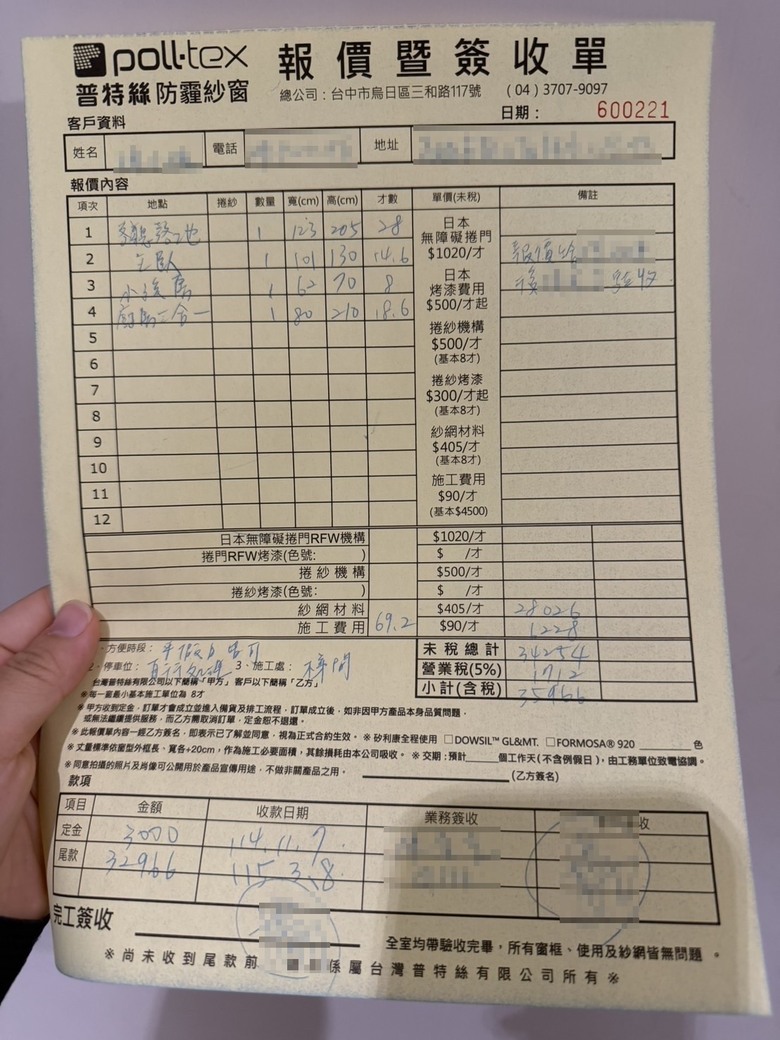 poll-tex 報價暨簽收單
普特絲防霾紗窗 總公司：台中市烏日區三和路117號 (04) 3707-9097
日期： 600221
客戶資料
姓名 電話 地址
報價內容
項次 地點 捲紗 數量 寬(cm) 高(cm) 才數 單價(未稅) 備註
1 落地 1 123 205 28
2 主臥 1 101 130 14.6
3 小孩房 1 62 70 8
4 廚房三合一 1 80 210 18.6
5
6
7
8
9
10
11
12
日本
無障礙捲門
$1020/才
日本
烤漆費用
$500/才起
捲紗機構
$500/才
(基本8才)
捲紗烤漆
$300/才起
(基本8才)
紗網材料
$405/才
(基本8才)
施工費用
$90/才
(基本$4500)
報價給
後 驗收
日本無障礙捲門RFW機構 $1020/才
捲門RFW烤漆(色號: ) $ /才
捲紗機構 $500/才
捲紗烤漆(色號: ) $ /才
紗網材料 $405/才 28026
施工費用 69.2 $90/才 1228
未稅總計 34254
營業稅(5%) 1712
小計(含稅) 35966
、方便時段：平假日皆可
2、停車位：自行處理 3、施工處：
台灣普特絲有限公司以下簡稱「甲方」客戶以下簡稱「乙方」
※每一面最小基本施工單位為 8才
※甲方收到定金，訂單才會成立並進入備貨及排工流程，訂單成立後，如非因甲方產品本身品質問題，
或無法繼續提供服務，而乙方需取消訂單，定金恕不退還。
※此報價單內容一經乙方簽名，即表示已了解並同意，視為正式合約生效。※矽利康全程使用 □DOWSIL™ GL&MT. □FORMOSA® 920 色
※丈量標準依窗型外框長、寬各+20cm，作為施工必要面積，其餘損耗由本公司吸收。※交期：預計 個工作天(不含例假日)，由工務單位致電協調。
※同意拍攝的照片及肖像可公開用於產品宣傳用途，不做非關產品之用。 (乙方簽名)
款項
項目 金額 收款日期 業務簽收 收
定金 3000 114.11.7
尾款 32966 115.3.8
完工簽收
全室均帶驗收完畢，所有窗框、使用及紗網皆無問題。
※尚未收到尾款前 係屬台灣普特絲有限公司所有※